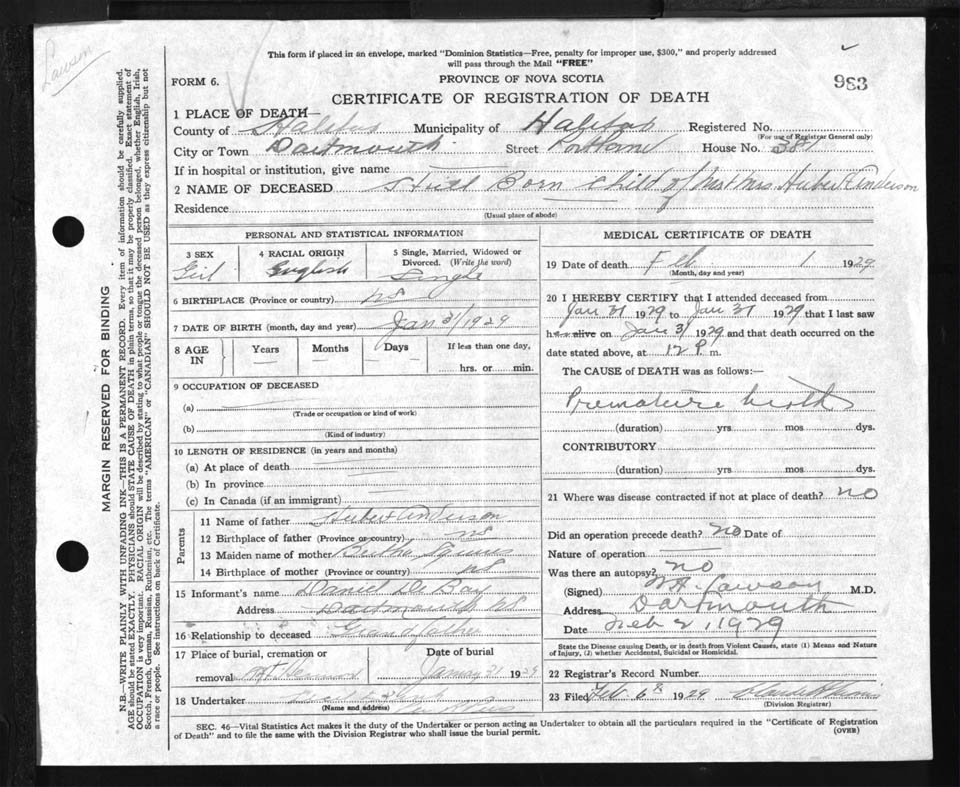 Lawson
This form if placed in an envelope, marked "Dominion Statistics—Free, penalty for improper use, $300," and properly addressed
will pass through the Mail "FREE"
983
FORM 6.
PROVINCE OF NOVA SCOTIA
CERTIFICATE OF REGISTRATION OF DEATH
1 PLACE OF DEATH—
County of Halifax Municipality of Halifax Registered No.
(For use of Registrar General only)
City or Town Dartmouth Street Portland House No. 381
If in hospital or institution, give name
2 NAME OF DECEASED Still Born child of Mr & Mrs. Hubert Anderson
Residence
(Usual place of abode)
PERSONAL AND STATISTICAL INFORMATION
3 SEX Girl
4 RACIAL ORIGIN English
5 Single, Married, Widowed or
Divorced. (Write the word)
Single
6 BIRTHPLACE (Province or country) NS
7 DATE OF BIRTH (month, day and year) Jan 31/1929
8 AGE IN Years Months Days If less than one day,
hrs. or min.
9 OCCUPATION OF DECEASED
(a)
(Trade or occupation or kind of work)
(b)
(Kind of industry)
10 LENGTH OF RESIDENCE (in years and months)
(a) At place of death
(b) In province
(c) In Canada (if an immigrant)
Parents
11 Name of father Hubert Anderson
12 Birthplace of father (Province or country) NS
13 Maiden name of mother Bertha
14 Birthplace of mother (Province or country) NS
15 Informant's name Daniel De Bay
Address Dartmouth NS
16 Relationship to deceased Grandfather
17 Place of burial, cremation or Date of burial
removal Mt Hermon January 31 1929
18 Undertaker
(Name and address)
MEDICAL CERTIFICATE OF DEATH
19 Date of death Feb 1 1929
(Month, day and year)
20 I HEREBY CERTIFY that I attended deceased from
Jan 31 1929 to Jan 31 1929 that I last saw
h alive on Jan 31 1929 and that death occurred on the
date stated above, at 12 P. m.
The CAUSE of DEATH was as follows:—
Premature birth
(duration) yrs mos dys.
CONTRIBUTORY
(duration) yrs mos dys.
21 Where was disease contracted if not at place of death? no
Did an operation precede death? no Date of
Nature of operation
Was there an autopsy? no
(Signed) Lawson M.D.
Address Dartmouth
Date Feb 2, 1929
State the Disease causing Death, or in death from Violent Causes, state (1) Means and Nature
of Injury, (2) whether Accidental, Suicidal or Homicidal.
22 Registrar's Record Number
23 Filed Feb 6th 1929
(Division Registrar)
SEC. 46—Vital Statistics Act makes it the duty of the Undertaker or person acting as Undertaker to obtain all the particulars required in the "Certificate of Registration
of Death" and to file the same with the Division Registrar who shall issue the burial permit.
(OVER)
MARGIN RESERVED FOR BINDING
N.B.—WRITE PLAINLY WITH UNFADING INK—THIS IS A PERMANENT RECORD. Every item of information should be carefully supplied.
AGE should be stated EXACTLY. PHYSICIANS should STATE CAUSE OF DEATH in plain terms, so that it may be properly classified. Exact statement of
OCCUPATION is very important. RACIAL ORIGIN will be described by stating to what people or tongue the deceased person belonged, whether English, Irish,
Scotch, French, German, Russian, Ruthenian, etc. The terms "AMERICAN" or "CANADIAN" SHOULD NOT BE USED as they express citizenship but not
a race or people. See instructions on back of Certificate.